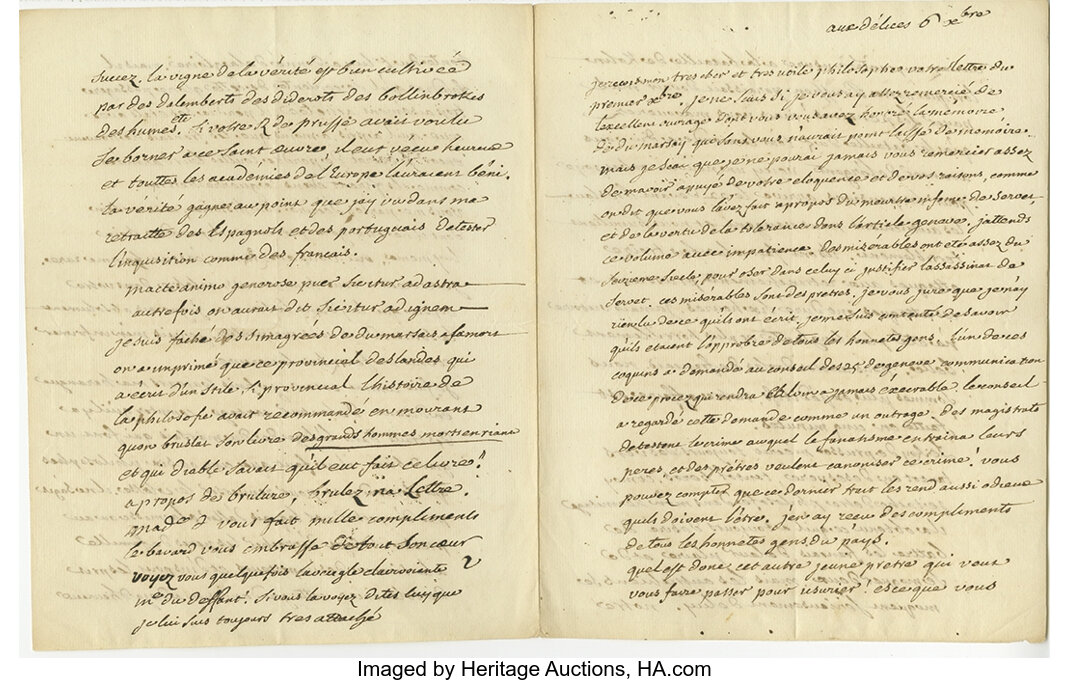 succez. la vigne de la vérité est bien cultivée
par des dalemberts des diderots des bollinbrokes
des humes, etc si votre R de prusse avait voulu
se borner a ce saint œuvre, il eut vécu heureux
et touttes les académies de l'Europe l'auraient béni.
la vérité gagne au point que j'ay vu dans ma
retraitte des Espagnols et des portuguais detester
l'inquisition comme des français.
macte animo generose puer sic itur ad astra
autrefois on aurait dit sic itur ad ignem
je suis faché des simagrées de dumarsais a sa mort
on a imprimé que ce provincial deslandes qui
a écrit d'un stile si provincial l'histoire de
la philosofie avait recommandé en mourant
quon brulat son livre des grands hommes morts en riant
et qui diable savait qu'il eut fait ce livre?
a propos de brulure, brulez ma lettre.
made D vous fait mille compliments
le bavard vous embrasse de tout son cœur
voyez vous quelquefois l'aveugle clairvoiante
me du deffant? si vous la voyez dites luy que
je lui suis toujours tres attaché
aux délices 6 xbre
je reçois mon tres cher et tres utile philosophe votre lettre du
premier xbre. je ne scais si je vous ay assez remercié de
l'excellent ouvrage dont vous avez honoré la mémoire
de du marsay qui sans vous n'aurait point laissé de mémoire.
mais je scai que je ne pourai jamais vous remercier assez
de m'avoir apuyé de votre eloquence et de vos raisons, comme
on dit que vous l'avez fait a propos du meurtre infame de Servet
et de la vertu de la tolérance dans l'article geneve. j'attends
ce volume avec impatience. des miserables ont eté assez du
seizieme siecle pour oser dans celuy ci justifier l'assassinat de
servet. ces misérables sont des pretres. je vous jure que je n'ay
rien lu de ce qu'ils ont écrit, je me suis contenté de savoir
qu'ils etaient l'opprobre de tous les honnetes gens. l'un de ces
coquins a demandé au conseil des 25 de geneve communication
de ce procez qui rendra Calvin a jamais execrable. le conseil
a regardé cette demande comme un outrage. des magistrats
detestent le crime auquel le fanatisme entraina leurs
peres, et des prêtres veulent canoniser ce crime! vous
pouvez compter que ce dernier trait les rend aussi odieux
quils doivent l'être. j'en ay reçu des compliments
de tous les honnetes gens du pays.
quel est donc cet autre jeune pretre qui veut
vous faire passer pour usurier? esce que vous
Imaged by Heritage Auctions, HA.com